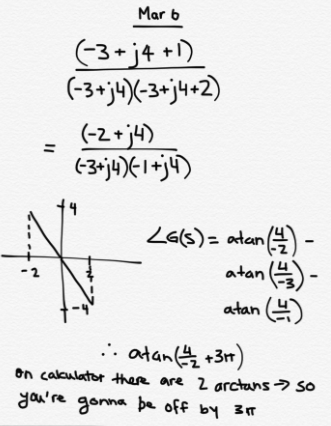 Mar 6
(-3 + j4 + 1)
(-3+j4)(-3+j4+2)
= (-2 + j4)
(-3+j4)(-1+j4)
4
-2
2
-4
∠G(s) = atan(4/-2) -
atan(4/-3) -
atan(4/-1)
∴ atan(4/-2 + 3π)
on calculator there are 2 arctans → so
you're gonna be off by 3π